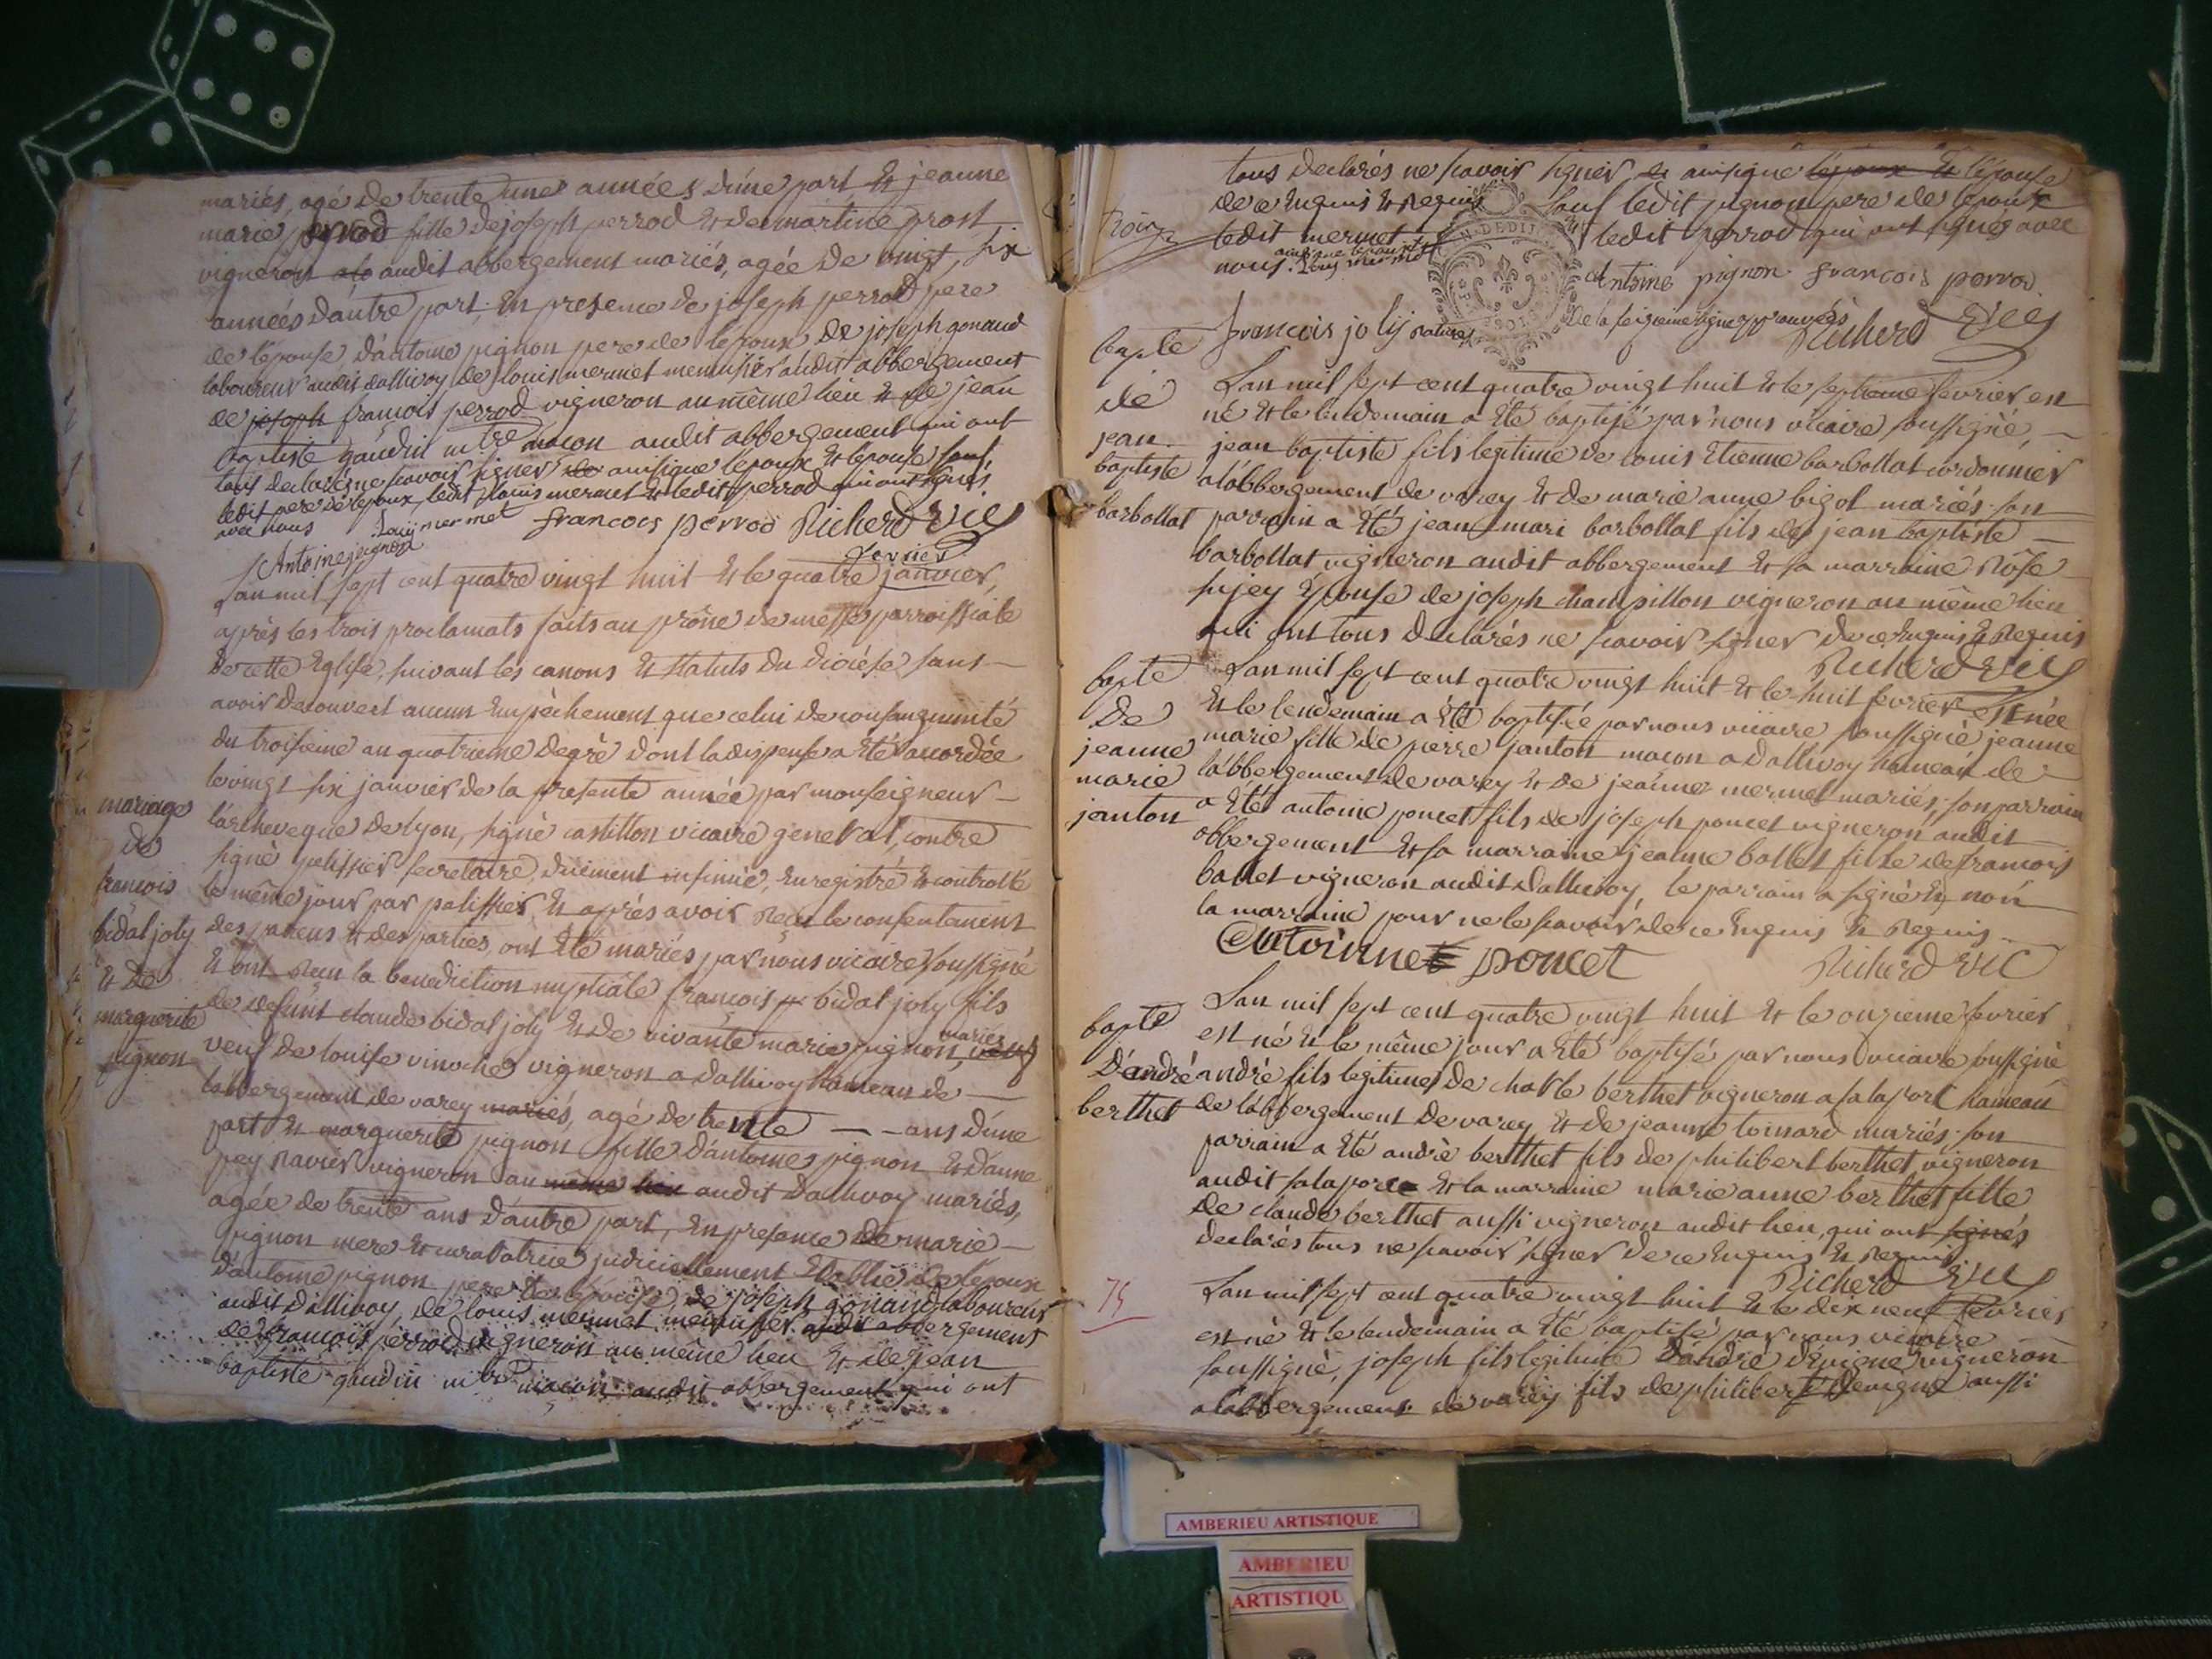 mariés, agé de trente une années d'une part et jeanne
marie perrod fille de joseph perrod et de martine prost
vigneron audit abbergement mariés, agée de vingt six
années d'autre part, en presence de joseph perrod pere
de l'epouse d'antoine pignon pere de l'epoux de joseph gonaud
laboureur audit dallivoy, de louis mermet menusier audit abbergement
de joseph françois perrod vigneron au même lieu et de jean
baptiste gaudin mtre macon audit abbergement qui ont
tous declarés ne scavoir signer ainsique l'epoux et l'epouse sauf
ledit pere de l'epoux, ledit louis mermet et ledit perrod qui ont signés
avec nous Louij mermet francois perrod Richerd vic
Antoine pignon
fevrier
L'an mil sept cent quatre vingt huit et le quatre janvier,
après les trois proclamats faits au prône de messe parroissiale
de cette Eglise, suivant les canons et statuts du diocése sans
avoir decouvert aucun empêchement que celui de consanguinité
du troisieme au quatrieme degrè dont la dispense a été accordée
le vingt six janvier de la presente année par monseigneur
l'archeveque de lyon, signè castillon vicaire general, contre
signè pelissier secretaire, duement insinuée, enregistré et controllé
le même jour par palissier, et aprés avoir reçu le consentement
des parens et des parties, ont été mariés par nous vicaire soussigné
et ont reçu la benediction nuptiale françois bidal joly fils
de defunt claude bidal joly et de vivante marie pignon, mariés
veuf de louise vinoche vigneron a dallivoy hameau de
l'abbergement de varey mariés, agé de trente ans d'une
part et marguerite pignon fille d'antoine pignon et d'anne
pey ravier vigneron au même lieu audit dallivoy mariés,
agée de trente ans d'autre part, en presence de marie
pignon mere et curatatrice judiciellement etablie de l'epoux
d'antoine pignon pere de l'epouse, de joseph gonaud laboureur
audit dallivoy, de louis mermet menusier audit abbergement
de françois perrod vigneron au même lieu et de jean
baptiste gaudin mtre macon audit abbergement qui ont
mariage
de
francois
bidal joly
et de
marguerite
pignon
tous declarés ne scavoir signer ainsique l'epoux et l'epouse
de ce enquis et requis sauf ledit pignon pere de l'epouse
ledit mermet et ledit perrod qui ont signés avec
nous. ainsique l'epoux
Louij mermet
Antoine pignon francois perrod
francois jolij
Richerd vic
bapte
de
jean
baptiste
barbollat
L'an mil sept cent quatre vingt huit et le septieme fevrier est
né et le lendemain a été baptisé par nous vicaire soussigné,
jean baptiste fils legitime de louis Etienne barbollat cordonnier
a l'abbergement de varey et de marie anne bigot mariés. son
parrain a été jean mari barbollat fils de jean baptiste
barbollat vigneron audit abbergement et sa marraine Rose
sijey epouse de joseph champillon vigneron au même lieu
qui ont tous declarés ne scavoir signer de ce enquis et requis
Richerd vic
bapte
de
jeanne
marie
janton
L'an mil sept cent quatre vingt huit et le huit fevrier est née
et le lendemain a été baptisée par nous vicaire soussigné jeanne
marie fille de pierre janton macon a dallivoy hameau de
l'abbergement de varey et de jeanne mermet mariés; son parrain
a été antoine poncet fils de joseph poncet vigneron audit
abbergement et sa marraine jeanne ballet fille de francois
ballet vigneron audit dallivoy, le parrain a signè et non
la marraine pour ne le scavoir de ce enquis et requis
Antoinne poncet Richerd vic
bapte
d'andré
berthet
L'an mil sept cent quatre vingt huit et le onzieme fevrier
est né et le même jour a été baptisé par nous vicaire soussigné
andrè fils legitime de charle berthet vigneron a salaport hameau
de l'abbergement de varey et de jeanne toinard mariés; son
parrain a été andrè berthet fils de philibert berthet, vigneron
audit salaport et la marraine marie anne berthet fille
de claude berthet aussi vigneron audit lieu, qui ont signés
declarés tous ne scavoir signer de ce enquis et requis
Richerd vic
75
L'an mil sept cent quatre vingt huit et le dix neuf fevrier
est né et le lendemain a été baptisé par nous vicaire
soussigné, joseph fils legitime d'andré devigne vigneron
a l'abbergement de varey fils de philibert devigne aussi
AMBERIEU ARTISTIQUE
AMBERIEU
ARTISTIQU